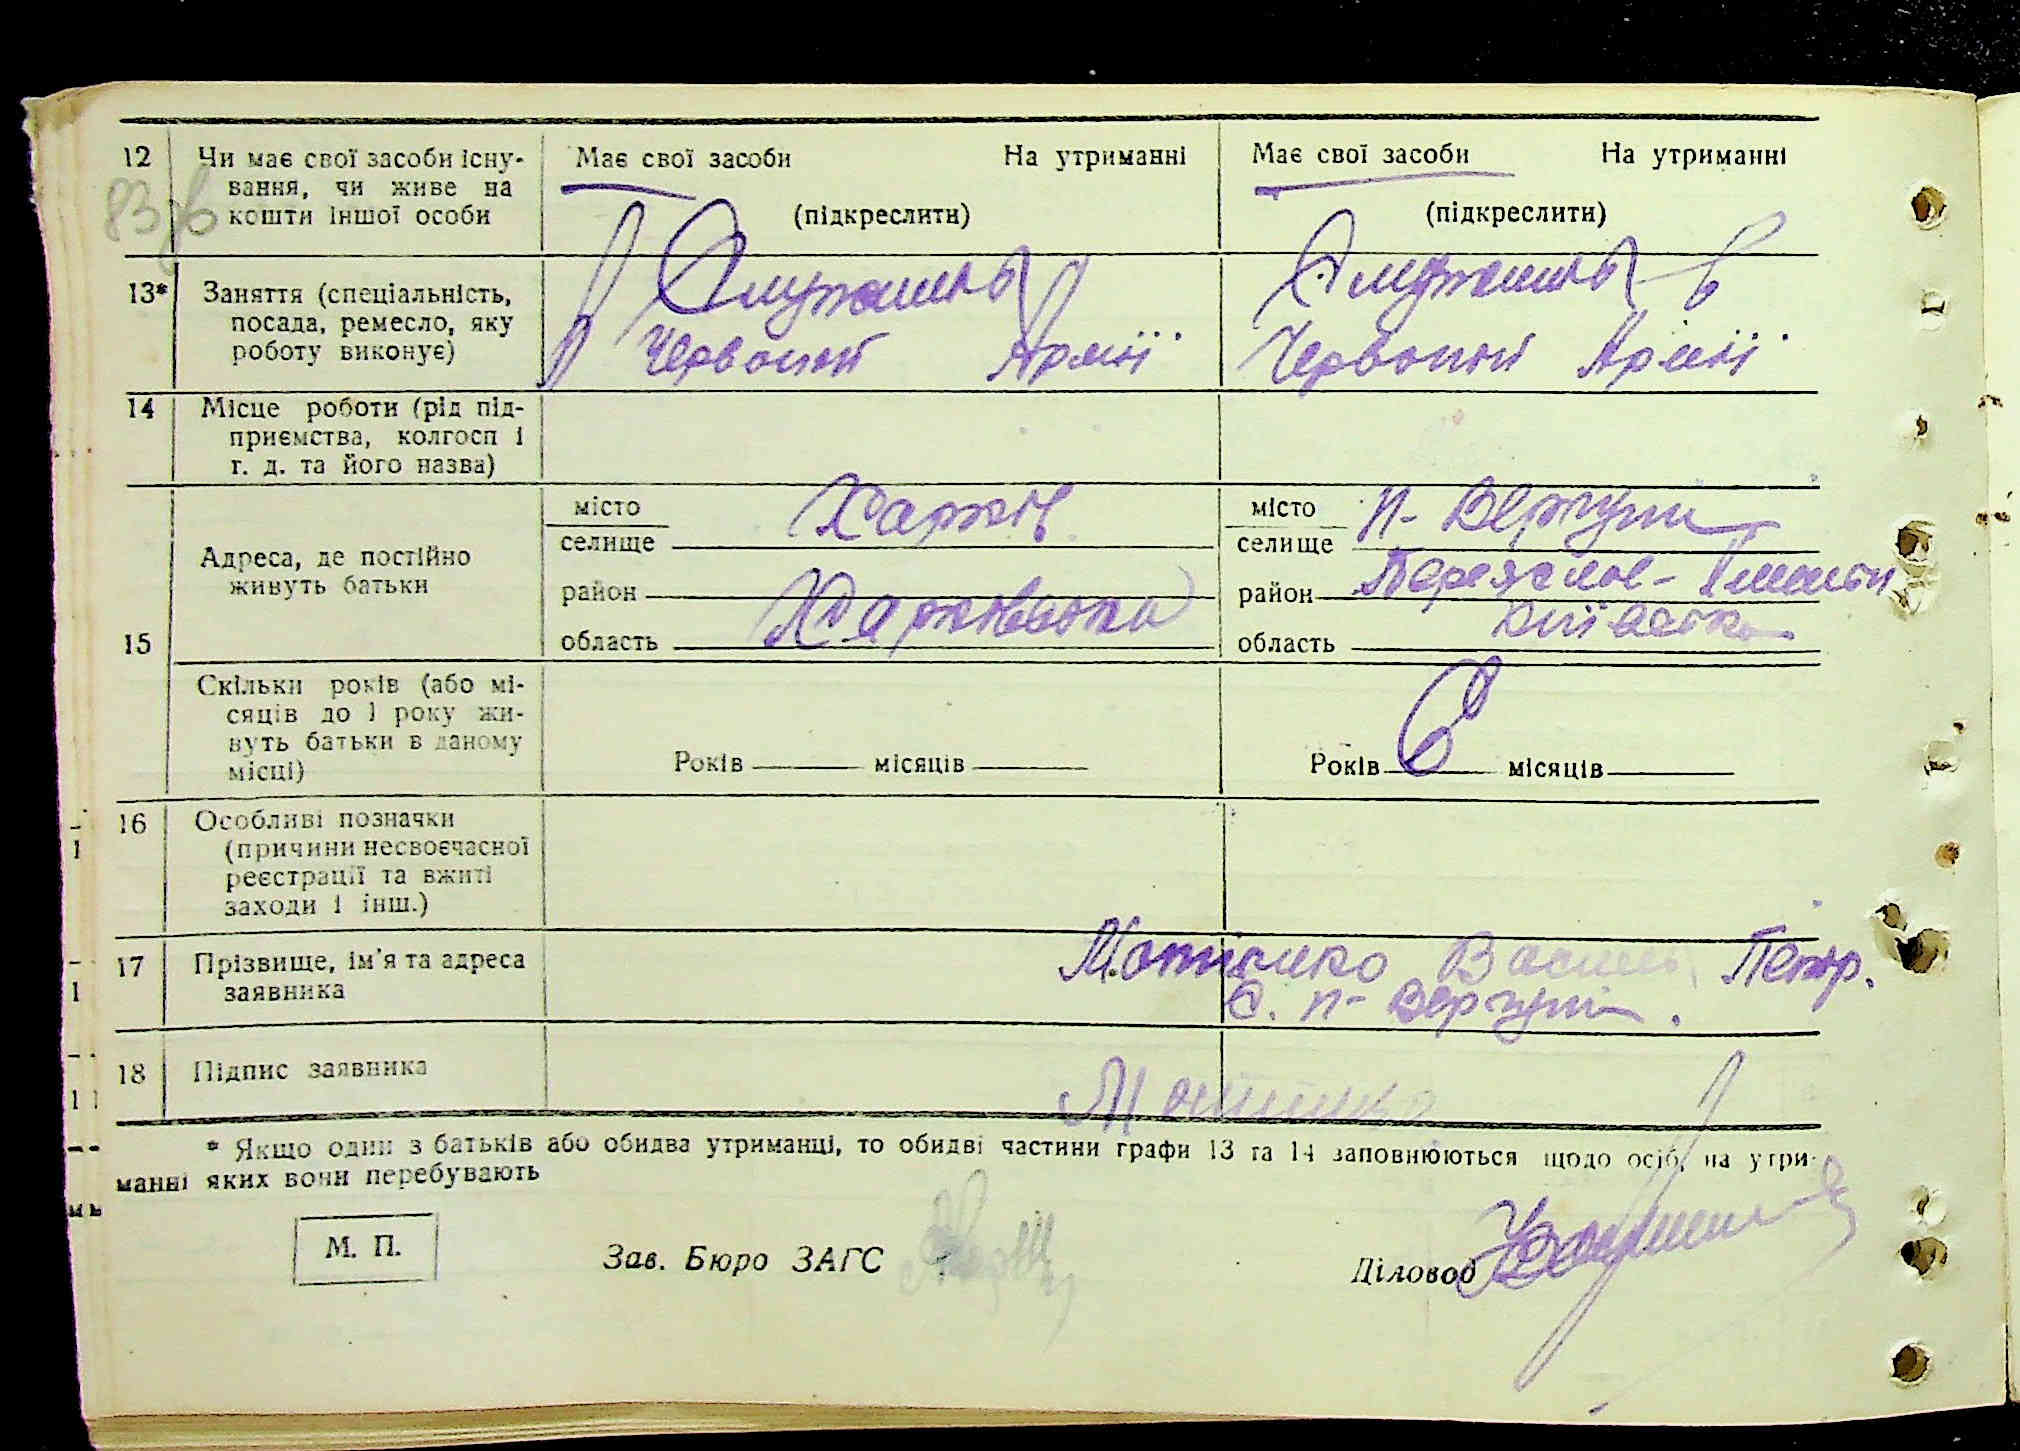 12 Чи має свої засоби існу-
вання, чи живе на
кошти іншої особи
Має свої засоби На утриманні
(підкреслити)
Має свої засоби На утриманні
(підкреслити)
13* Заняття (спеціальність,
посада, ремесло, яку
роботу виконує)
Червоній Армії
Червоній Армії
14 Місце роботи (рід під-
приємства, колгосп і
т. д. та його назва)
15 Адреса, де постійно
живуть батьки
місто
селище Харків
район
область Харківська
місто
селище п-Вергуни
район Переяслав-
область Київська
Скільки років (або мі-
сяців до 1 року жи-
вуть батьки в даному
місці)
Років місяців
Років 6 місяців
16 Особливі позначки
(причини несвоєчасної
реєстрації та вжиті
заходи і інш.)
17 Прізвище, ім'я та адреса
заявника
Василь Петр.
с. п-Вергуни.
18 Підпис заявника
* Якщо один з батьків або обидва утриманці, то обидві частини графи 13 та 14 заповнюються щодо осіб, на утри-
манні яких вони перебувають
М. П.
Зав. Бюро ЗАГС
Діловод